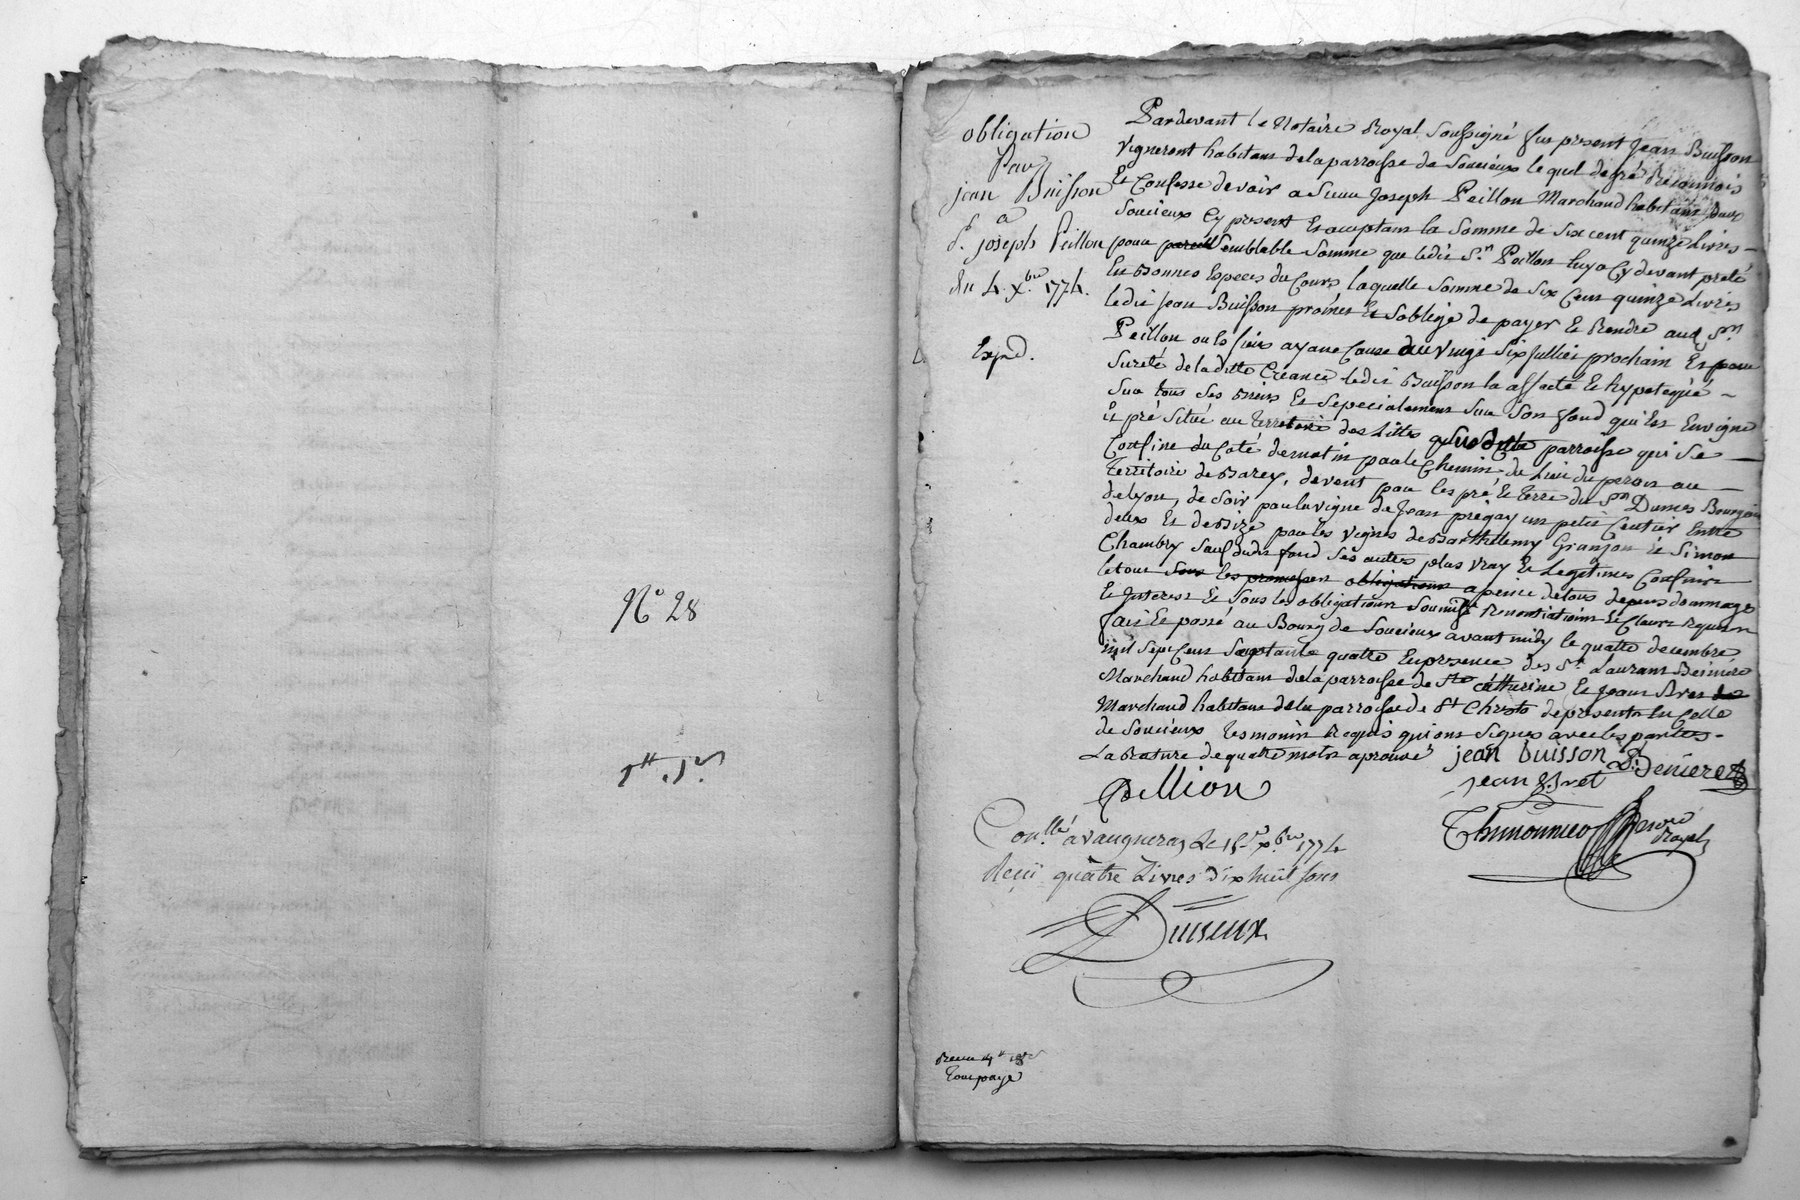 N° 28
obligation
Par
jean Buisson
a
Sr. joseph Peillon
du 4 Xbre 1774.
Exped.
Pardevant le Notaire Royal soussigné fut present Jean Buisson
Vigneront habitant de la parroisse de Soucieux lequel de gré Reconnois
Et Confesse devoir a Sieur Joseph Peillon Marchand habitant dud
Soucieux Cy present Et acceptant la Somme de Six cent quinze Livres
pour pareill Semblable Somme que ledit Sr. Peillon luy a Cy devant preté
En Bonnes Especes du Cours laquelle Somme de Six Cent quinze Livres
ledit Jean Buisson promet Et s'oblige de payer Et Rendre aud. Sr.
Peillon ou Es siens ayant Cause du Vingt Six Juillet prochain Et pour
Sureté de la ditte Créance ledit Buisson la affecté Et hypotequé
Sur tous Ses Biens Et Specialement Sur Son fond qui Est En vigne
Et pré Situé au Territoire des Littes Susditte parroisse qui Se
Confine du Coté de matin par le Chemin du Lieu du peron au
Territoire de Barey, de vent par les pré Et Terre du Sr. Dumes Bourgois
de Lyon, de Soir par la vigne de Jean pregay un petit Centier Entre
deux Et de Bize par les Vignes de Barthelemy Granjon Et Simon
Chambry Sauf dudit fond Ses autres plus vray Et Legitimes Confins
le tout Sous les promesses obligations a peine de tous depens dommage
Et Interest Et Sous les obligations Soumiss. Renontiations Et Clauses Requises
fait Et passé au Bourg de Soucieux avant midy le quatre decembre
mil Sept Cent Septante quatre En presence des Sr. Laurant Beiniere
Marchand habitant de la parroisse de Ste Catherine Et Jean Bret
Marchand habitant de la parroisse de St Christo de present En Celle
de Soucieux Tesmoins Requis qui ont Signés avec les parties
La Rature de quatre mots aprouvé
jean buisson
L. Beniere
jean Bret
Pellion
Thimonnier
Notre
Royal
Conllé a vaugneray Le 15 Xbre 1774
Reçu quatre Livres dix huit Sous
Duseux
Receu 4
Tout payé